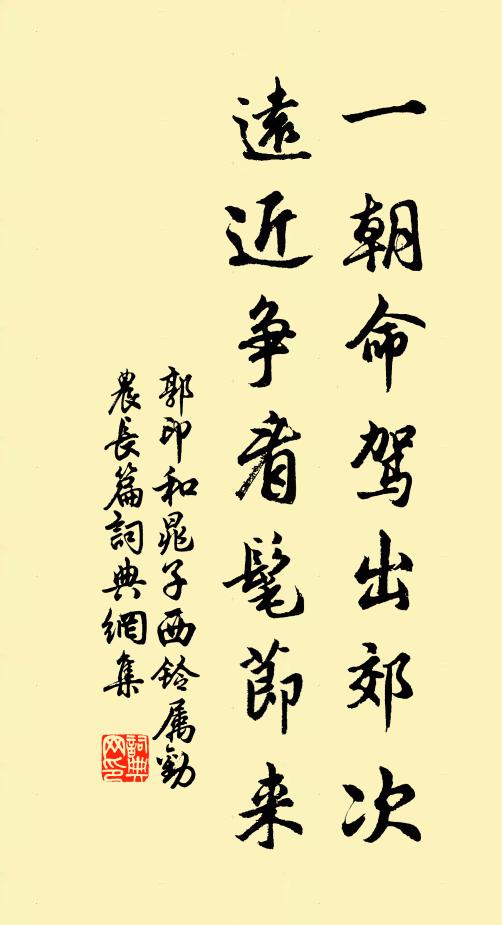 一朝命駕出郊次
遠近争看髦節来
郭印和晁子西鈴属勸
農長篇詞典網集
詞典
网印